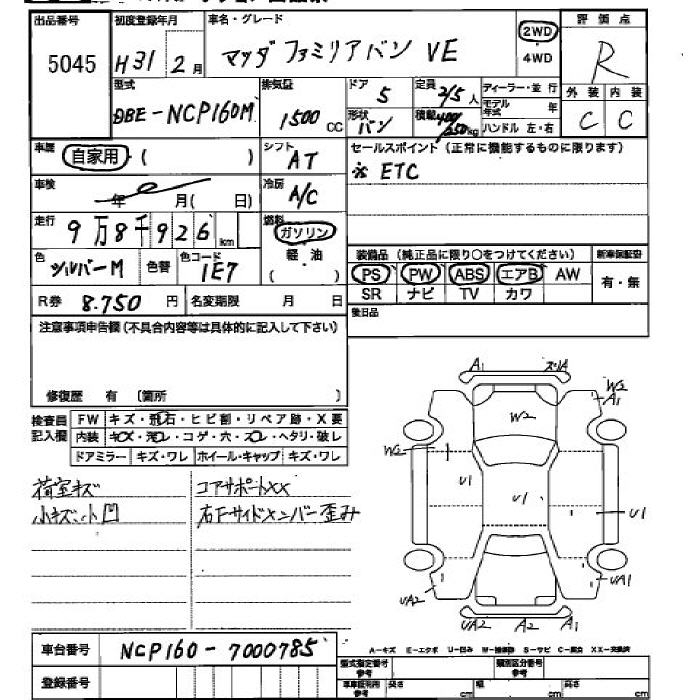 出品番号 初度登録年月 車名・グレード 評価点
5045 H31 2月 マツダ ファミリアバン VE 2WD ・ 4WD R
型式 排気量 ドア 定員 ディーラー・並行 外装 内装
DBE-NCP160M 1500 CC 5 2/5人 モデル年式 年 C C
形状 積載 ハンドル 左・右
バン 400/250kg
車歴 自家用 ( ) シフト AT セールスポイント (正常に機能するものに限ります)
※ ETC
車検 年 月 ( 日) 冷房 A/C
走行 9万8千926km 燃料 ガソリン
軽油
( )
色 シルバーM 色替 色コード 1E7 装備品 (純正品に限り○をつけてください) 新車保証書
PS PW ABS エアB AW 有・無
R券 8.750円 名変期限 月 日 SR ナビ TV カワ
後日品
注意事項申告欄 (不具合内容等は具体的に記入して下さい)
修復歴 有 〔箇所 〕
検査員記入欄 FW キズ・飛石・ヒビ割・リペア跡・X要
内装 キズ・汚レ・コゲ・穴・スレ・ヘタリ・破レ
ドアミラー キズ・ワレ ホイール・キャップ キズ・ワレ
荷室キズ コアサポートXX
小キズ、小凹 右Fサイドメンバー歪み
A1 スリA
W2 A1
W2
W2
U1 U1 U1
UA2 UA1
UA2 A2 A1
A-キズ E-エクボ U-凹み W-補修跡 S-サビ C-腐食 XX-交換済
車台番号 NCP160-7000785
登録番号
型式指定番号 参考 類別区分番号 参考
車車証利用 参考 長さ cm 幅 cm 高さ cm